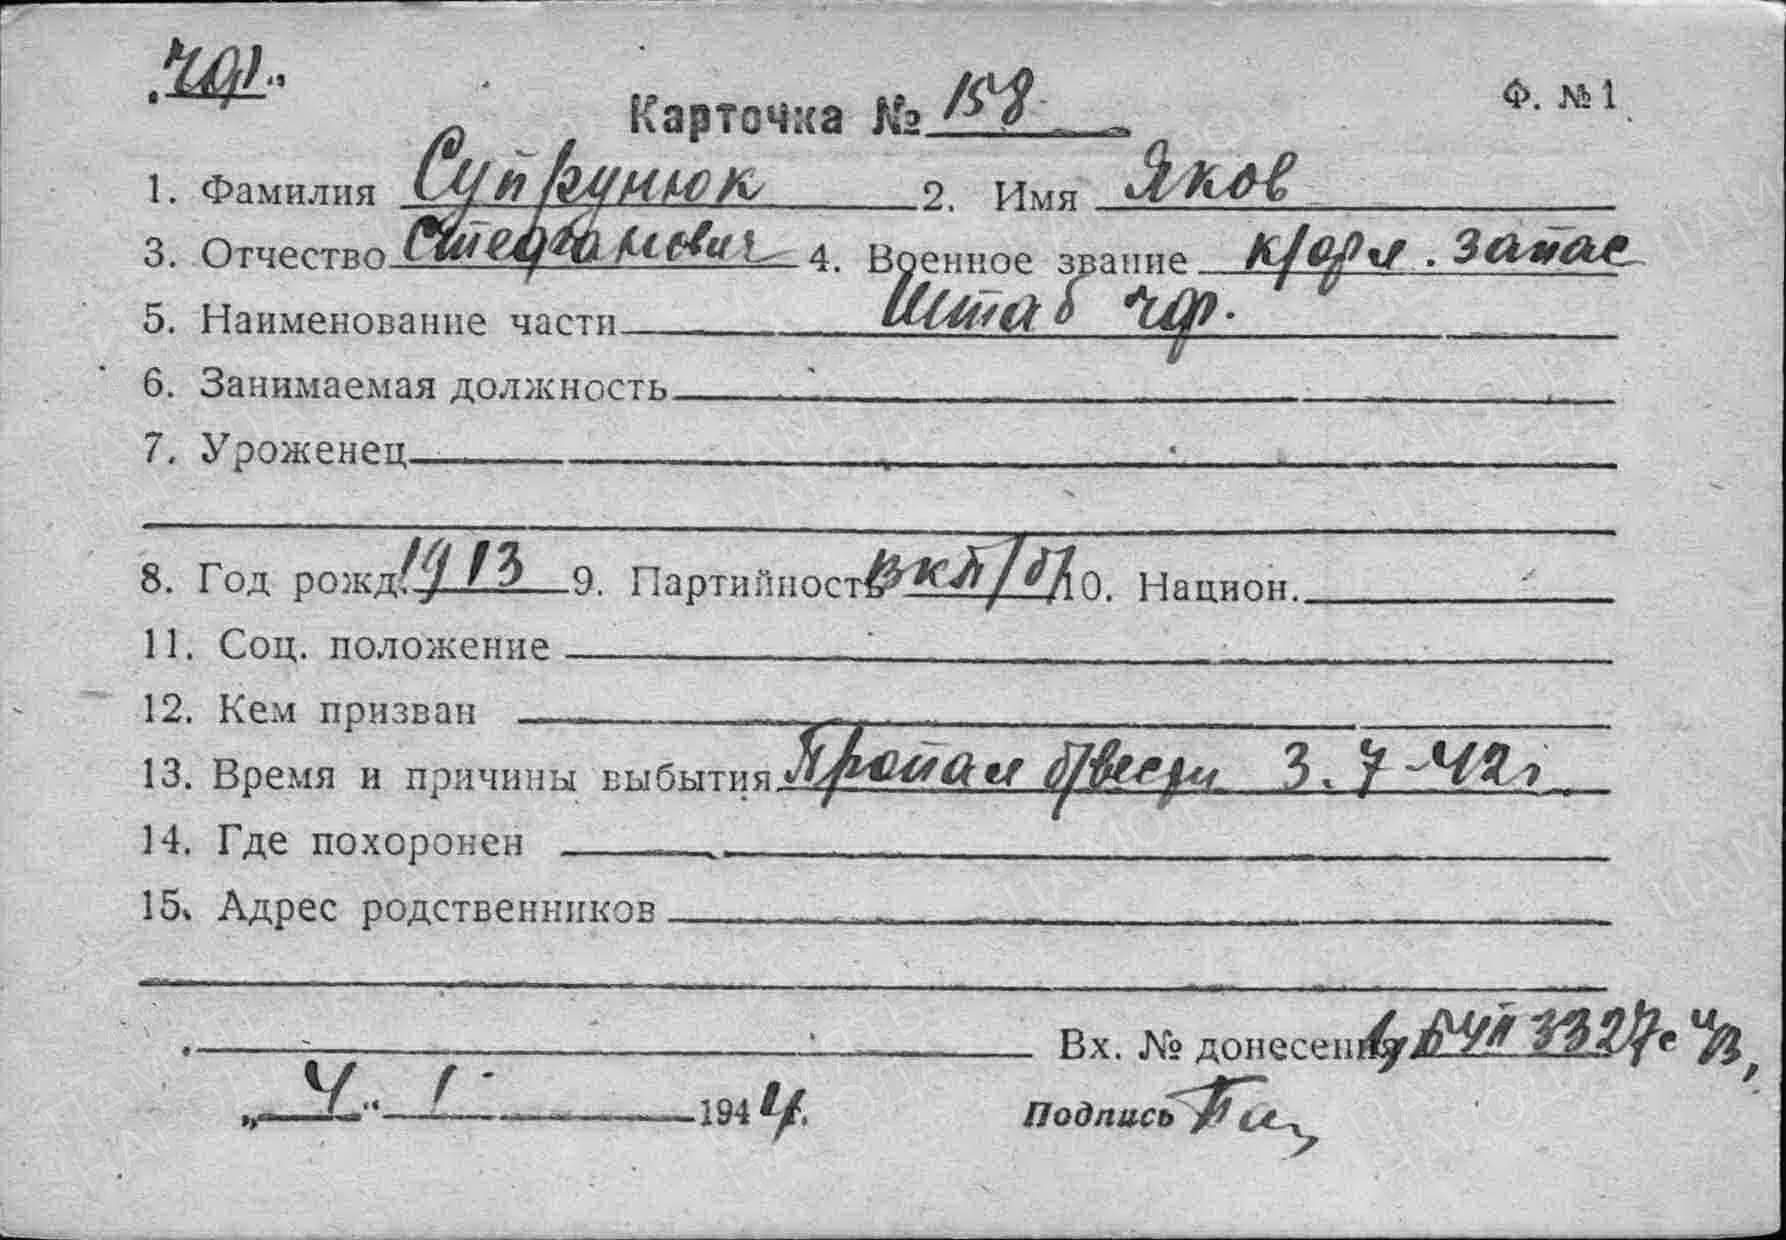 "чф."
Карточка № 158 Ф. № 1
1. Фамилия Супрунюк 2. Имя Яков
3. Отчество Стефанович 4. Военное звание к/фл. запас
5. Наименование части Штаб чф.
6. Занимаемая должность
7. Уроженец
8. Год рожд. 1913 9. Партийность ВКП/б/ 10. Национ.
11. Соц. положение
12. Кем призван
13. Время и причины выбытия Пропал б/вести 3.7-42г.
14. Где похоронен
15. Адрес родственников
Вх. № донесения 3327с
„4“ 1 1944г.
Подпись